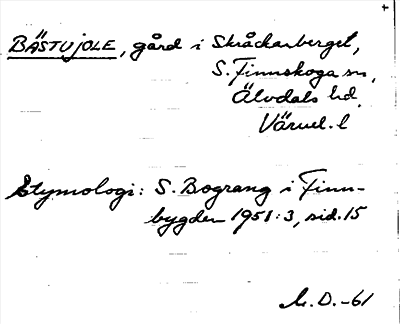 BÄSTUJOLE, gård i Skråckarberget,
S. Finnskoga sn,
Älvdals hd,
Värml. l
Etymologi: S. Bograng i Finn-
bygden 1951:3, sid. 15
M.D.-61